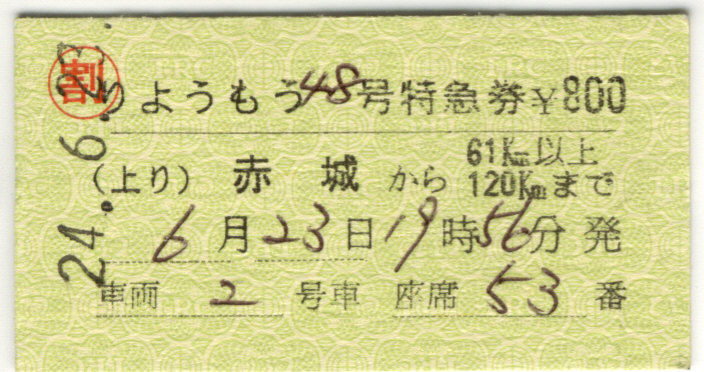 割
24.-6.23
りょうもう48号特急券¥800
(上り) 赤城 から 61Km以上
120Kmまで
6月23日19時56分発
車両 2 号車 座席 53 番